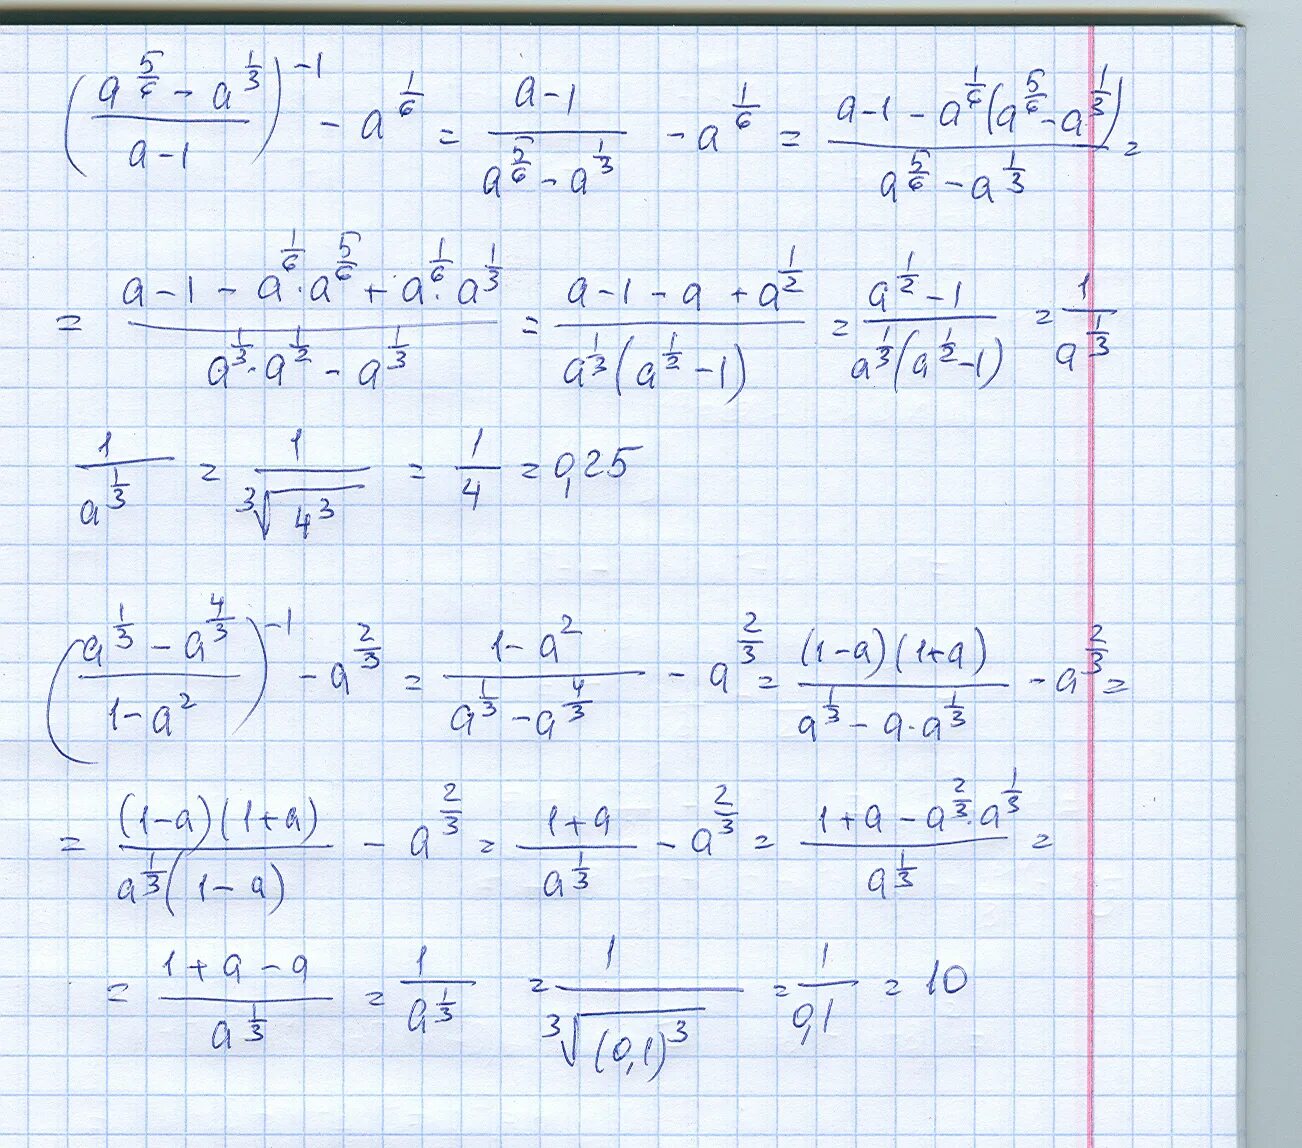 ((a^(5/6) - a^(1/3))/(a-1))^(-1) - a^(1/6) = (a-1)/(a^(5/6) - a^(1/3)) - a^(1/6) = (a-1-a^(1/6)(a^(5/6)-a^(1/3)))/(a^(5/6) - a^(1/3)) =
= (a-1-a^(1/6)·a^(5/6)+a^(1/6)·a^(1/3))/(a^(1/3)·a^(1/2) - a^(1/3)) = (a-1-a+a^(1/2))/(a^(1/3)(a^(1/2)-1)) = (a^(1/2)-1)/(a^(1/3)(a^(1/2)-1)) = 1/a^(1/3)
1/a^(1/3) = 1/∛(4^3) = 1/4 = 0,25
((a^(1/3) - a^(4/3))/(1-a^2))^(-1) - a^(2/3) = (1-a^2)/(a^(1/3) - a^(4/3)) - a^(2/3) = ((1-a)(1+a))/(a^(1/3) - a·a^(1/3)) - a^(2/3) =
= ((1-a)(1+a))/(a^(1/3)(1-a)) - a^(2/3) = (1+a)/a^(1/3) - a^(2/3) = (1+a-a^(2/3)·a^(1/3))/a^(1/3) =
= (1+a-a)/a^(1/3) = 1/a^(1/3) = 1/∛((0,1)^3) = 1/0,1 = 10